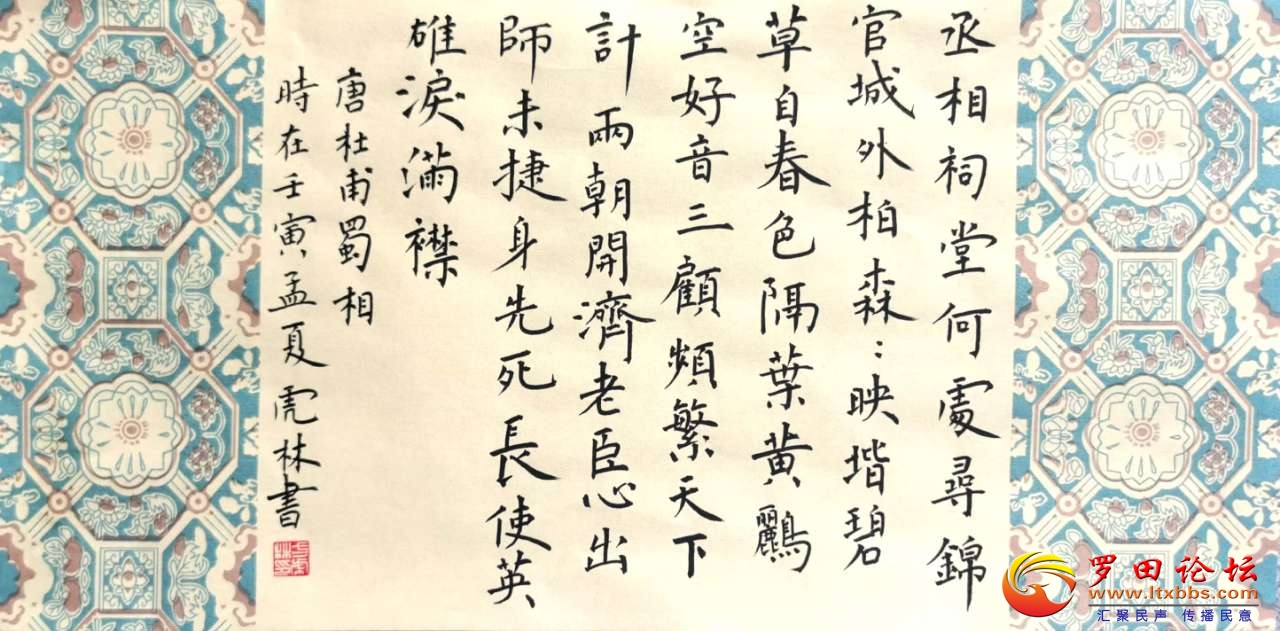 丞相祠堂何處尋錦
官城外柏森:映堦碧
草自春色隔葉黄鸝
空好音三顧頻繁天下
計兩朝開濟老臣心出
師未捷身先死長使英
雄淚滿襟
唐杜甫蜀相
時在壬寅孟夏虎林書
罗田论坛
www.ltxbbs.com
汇聚民声 传播民意